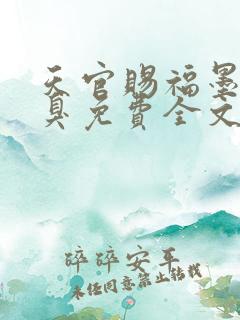 天官赐福墨
臭免费全文
碎碎安平
未经同意禁止转载